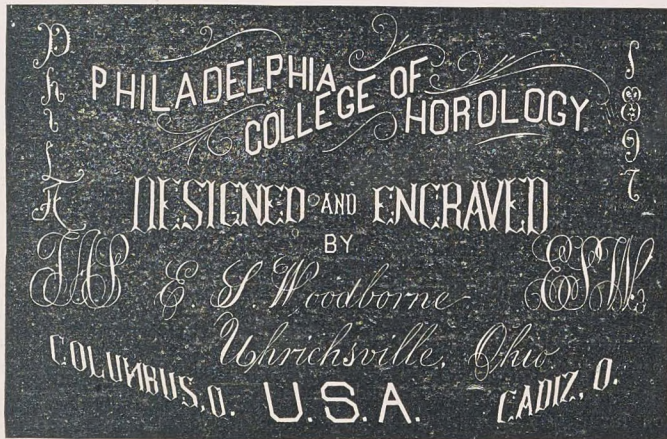 PHILADELPHIA
COLLEGE OF
HOROLOGY
Phila
1897
DESIGNED AND ENGRAVED
BY
E. S. Woodborne
ESW.
Uhrichsville, Ohio
COLUMBUS, O.
U.S.A.
CADIZ, O.